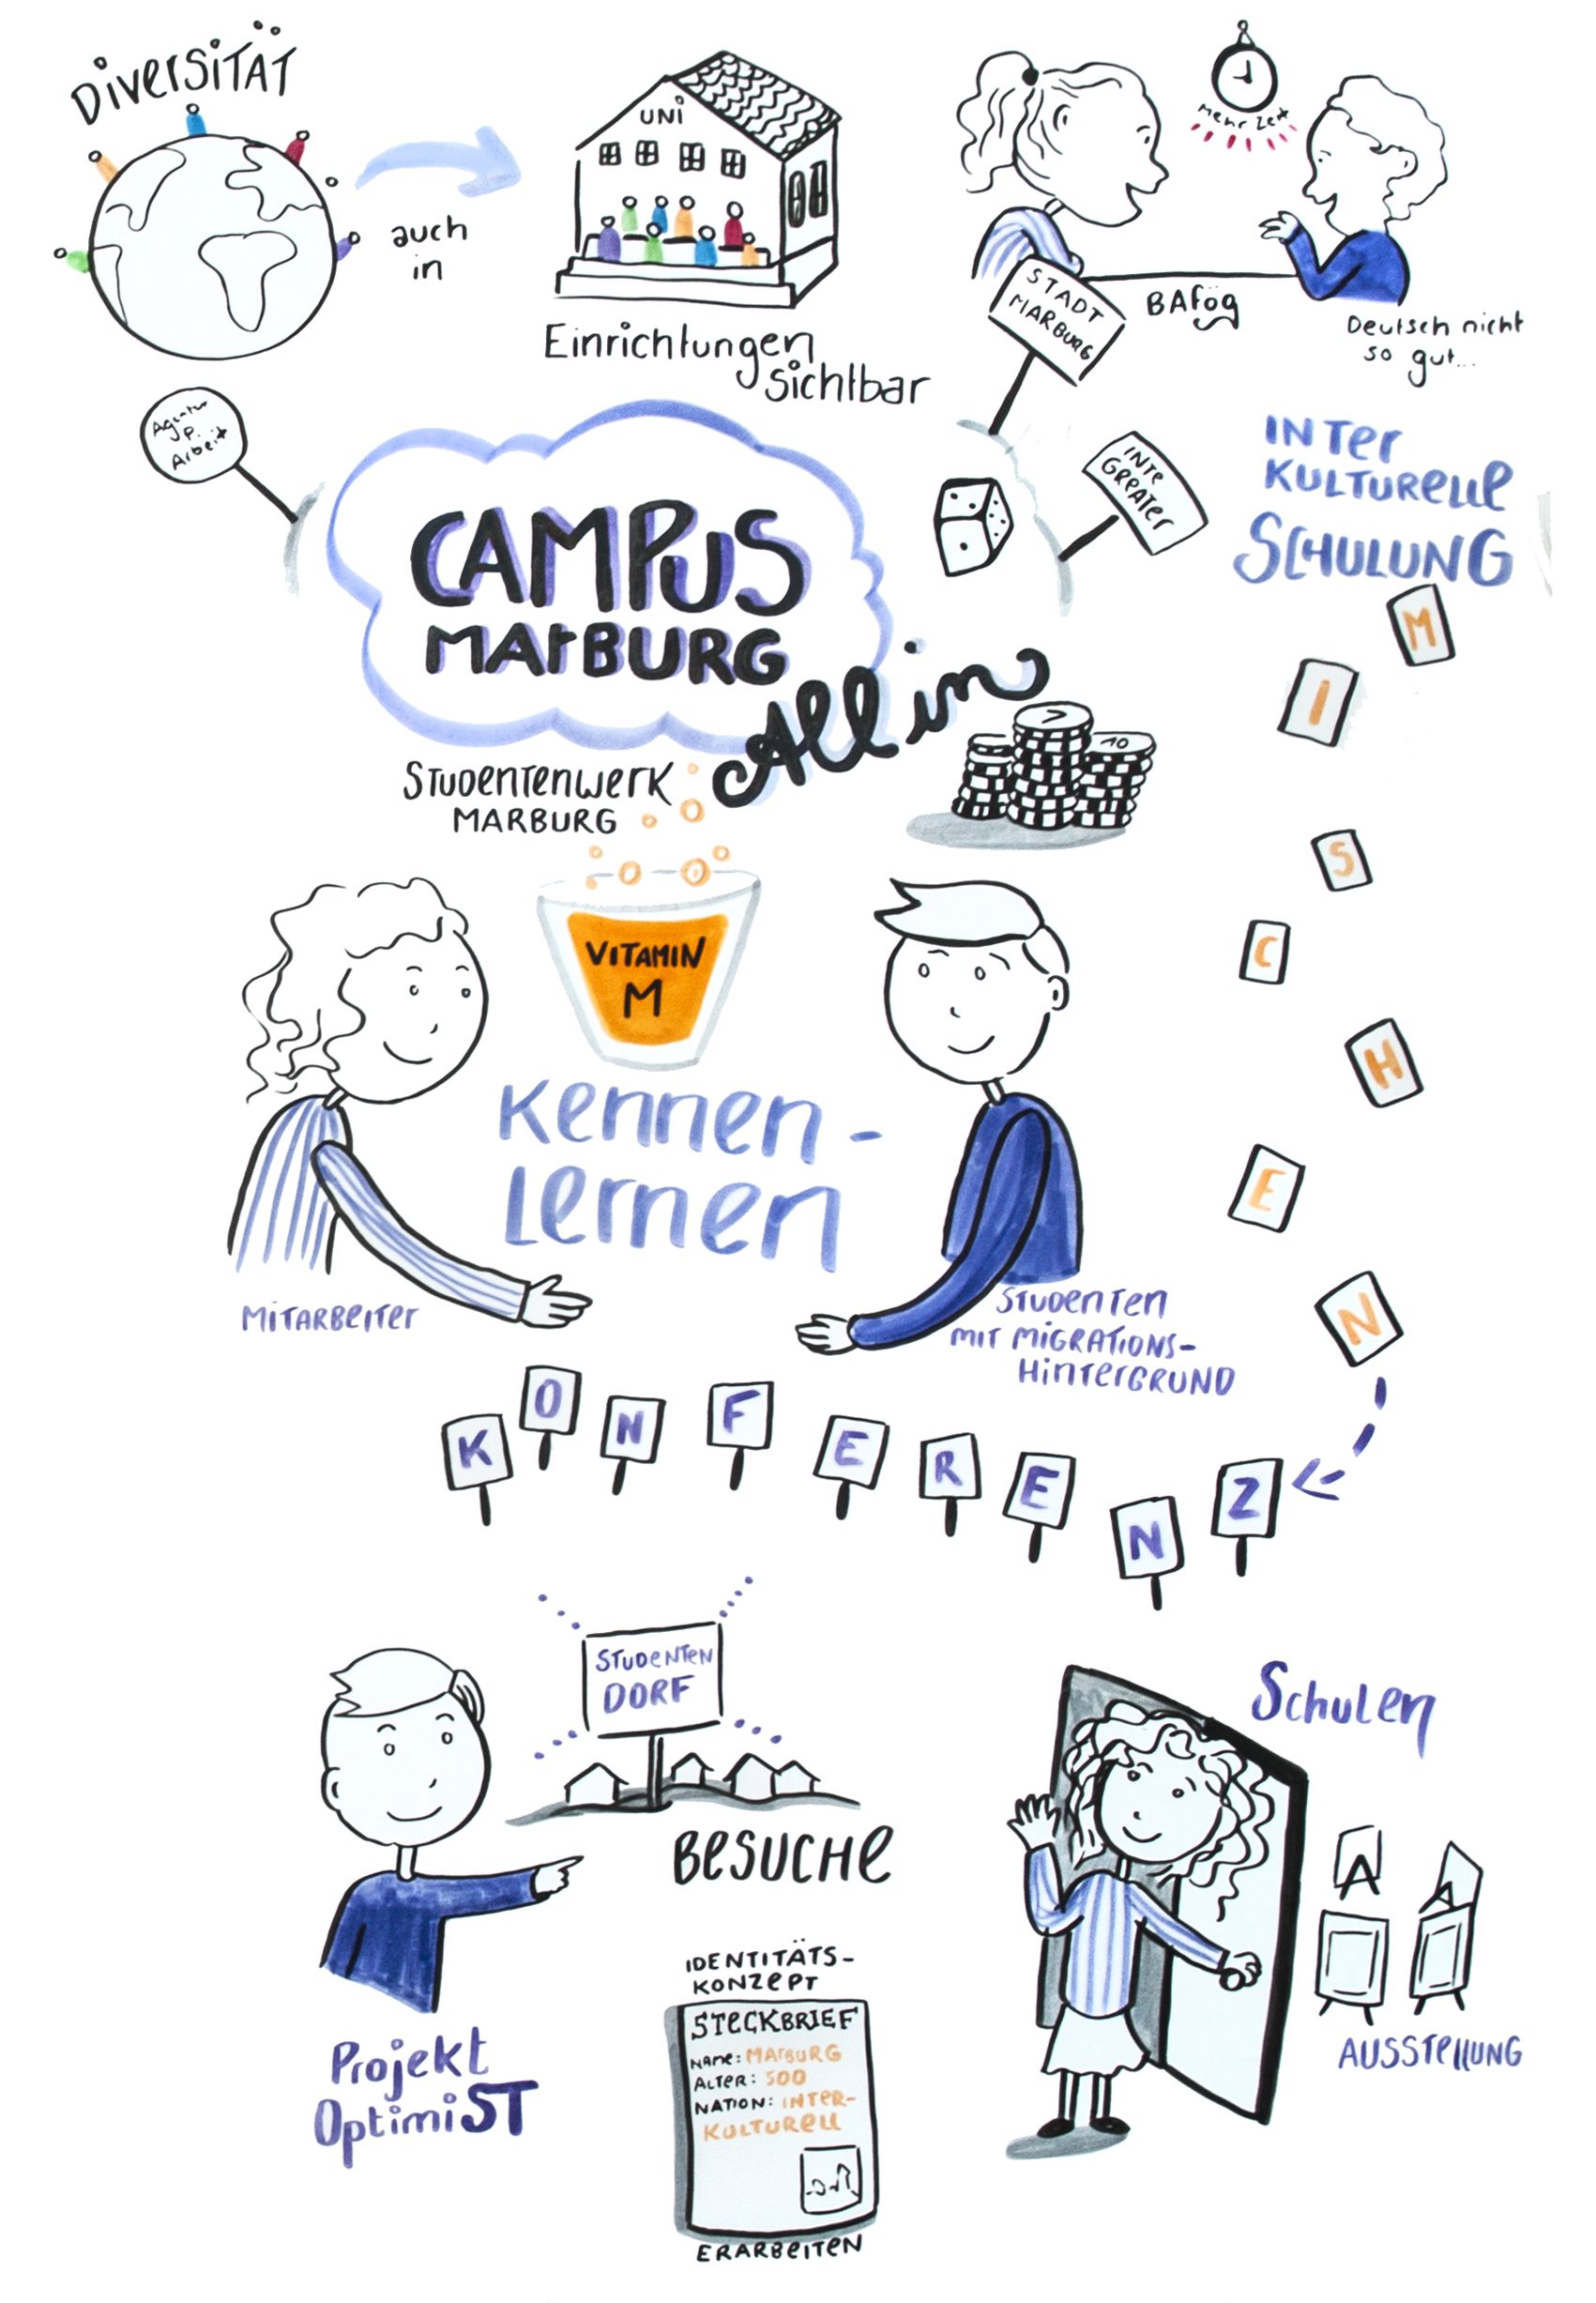 Diversität
auch
in
UNi
Einrichtungen
sichtbar
mehr Zeit
STADT
MARBURG
BAfög
Deutsch nicht
so gut...
Agentur
Arbeit
INTE
GREATER
INTer
KULTURELLE
SCHULUNG
CAMPUS
MArBURG
All in
10
STUDENTENWERK
MARBURG
VITAMIN
M
Kennen-
Lernen
MITARBEITER
STUDENTEN
MIT MIGRATIONS-
HINTERGRUND
M
I
S
C
H
E
N
K O N F E R E N Z
STUDENTEN
DORF
BESUCHE
Projekt
OptimiST
IDENTITÄTS-
KONZEPT
STECKBRIEF
NAME: MARBURG
ALTER: 500
NATION: INTER-
KULTURELL
ERARBEITEN
Schulen
AUSSTELLUNG